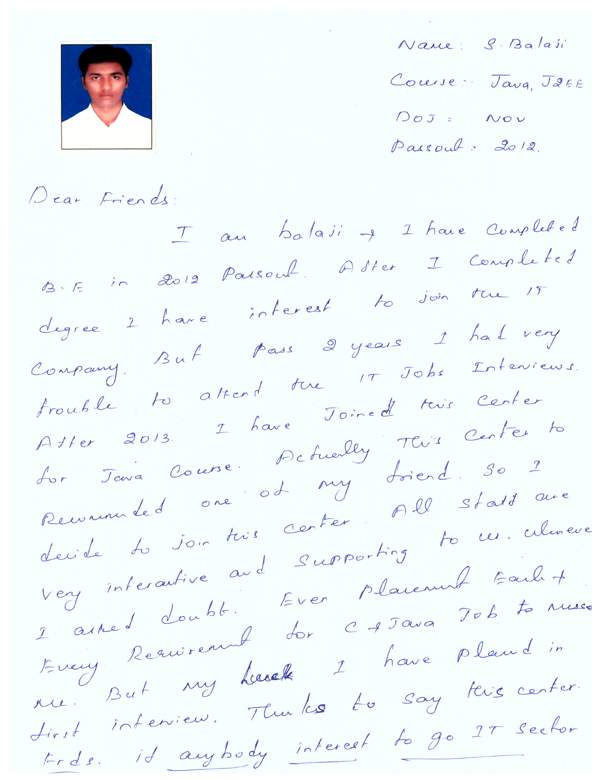 Name: S. Balaji
Course:- Java, J2EE
DOJ: Nov
Passout: 2012.
Dear Friends:
I am balaji & I have completed
B.E in 2012 Passout. After I completed
degree I have interest to join the IT
Company. But Pass 2 years I had very
trouble to attend the IT Jobs Interviews.
After 2013. I have Joined this Center
for Java Course. Actually This Center to
Recommended one of my friend. So I
decide to join this center. All Staff are
very interactive and Supporting to us. Wheneve
I asked doubt. Even Placement Each &
Every Requirement for C & Java Job to
me. But my luck I have placed in
first interview. Thanks to say this center.
Frds. if anybody interest to go IT Sector